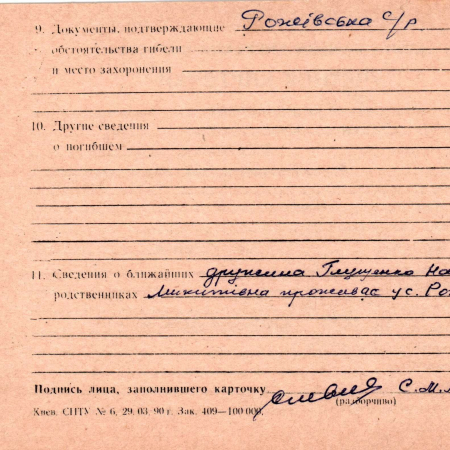 9. Документы, подтверждающие Рожівська с/р
обстоятельства гибели
и место захоронения
10. Другие сведения
о погибшем
11. Сведения о ближайших дружина Глущенко На
родственниках Микитівна проживає у с. Рож
Подпись лица, заполнившего карточку С.М.
(разборчиво)
Киев. СПТУ № 6, 29. 03. 90 г. Зак. 409—100 000.